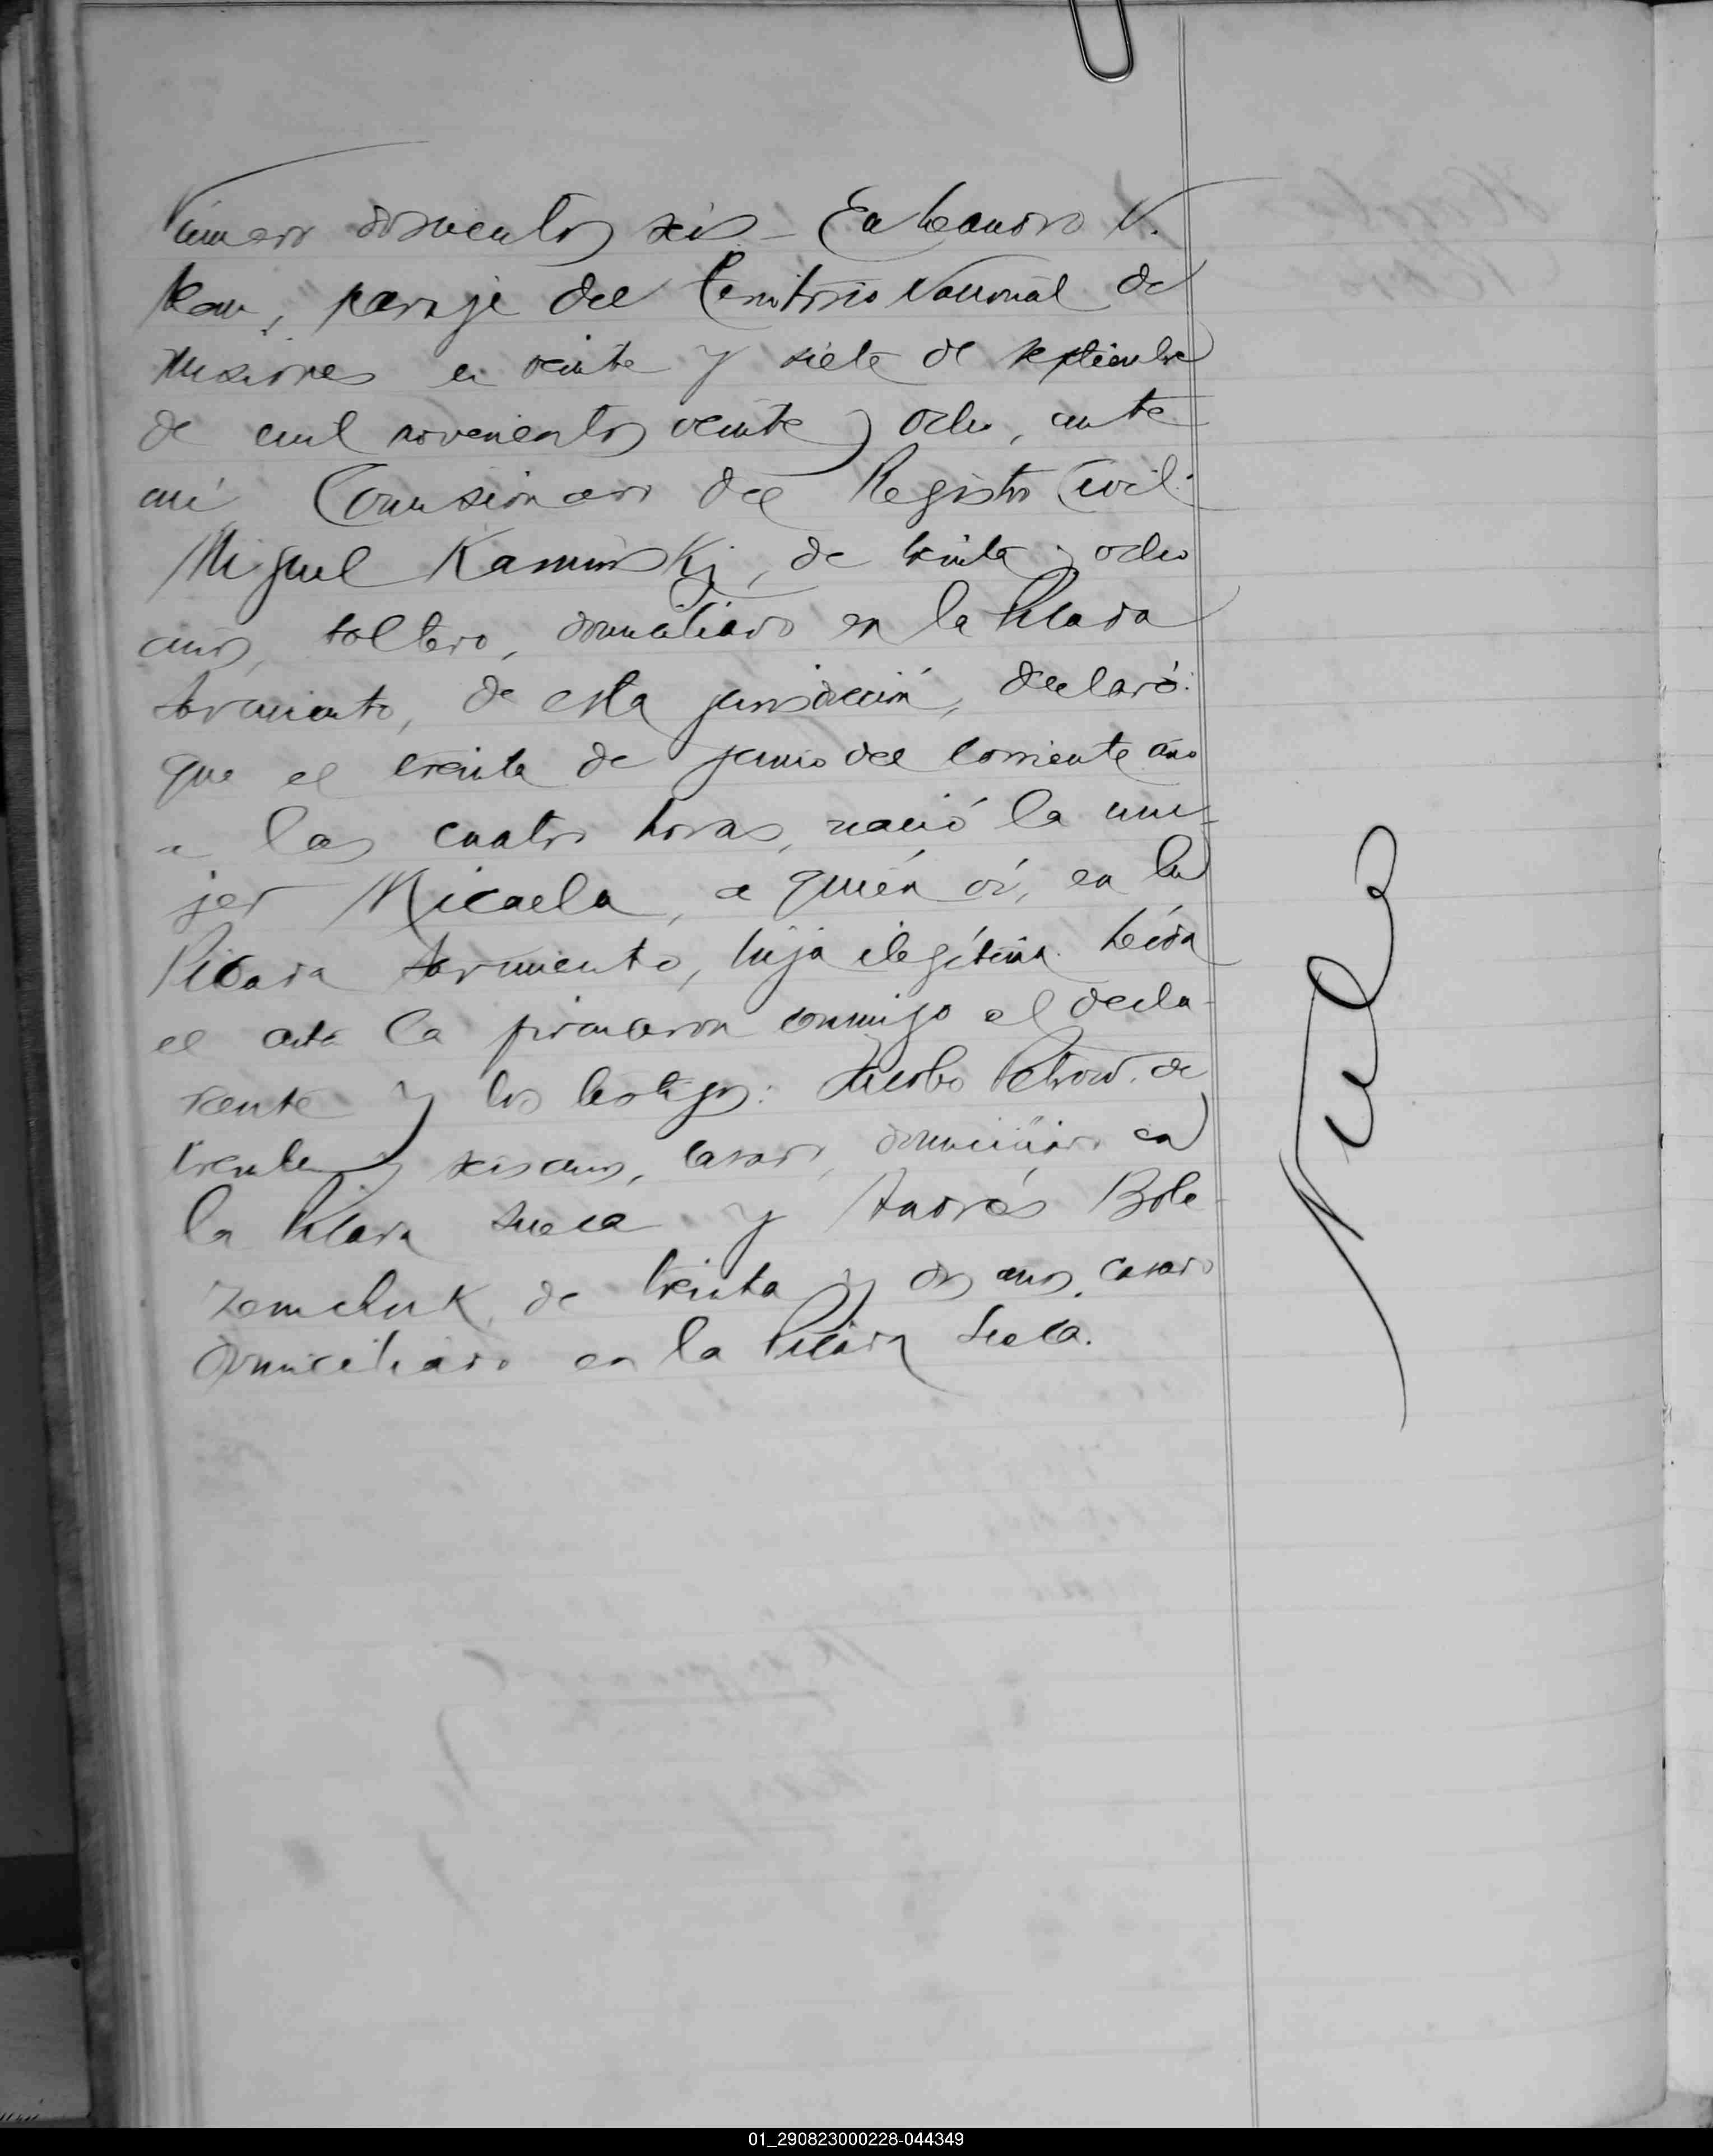 Número doscientos seis - En Leandro N.
Alem, paraje del Territorio Nacional de
Misiones a veinte y siete de septiembre
de mil novecientos veinte y ocho, ante
mí Comisionado del Registro Civil:
Miguel Kaminskj, de treinta y ocho
años, soltero, domiciliado en la Picada
Sarmiento, de esta jurisdicción, declaró:
que el treinta de junio del corriente año
a las cuatro horas, nació la mu-
jer Micaela, a quién ví, en la
Picada Sarmiento, hija ilegítima. Leída
el acta la firmaron conmigo el decla-
rante y los testigos: Jacobo Petrow, de
treinta y seis años, casado, domiciliado en
la Picada Sueca y Andrés Bole-
zemchuk, de treinta y dos años, casado
domiciliado en la Picada Sueca.
Nulo
01_290823000228-044349